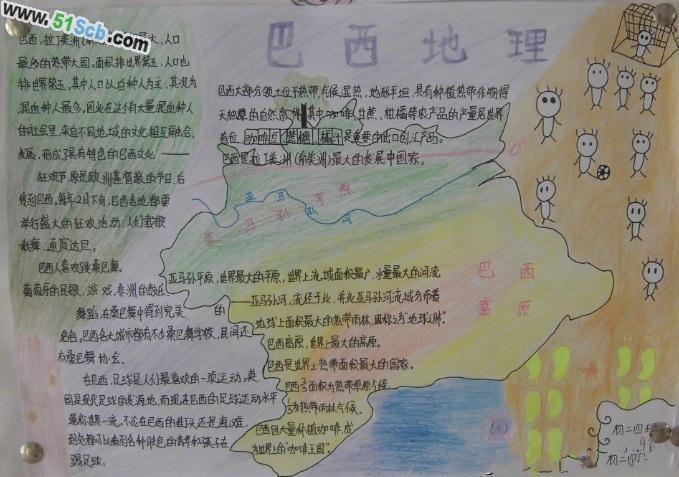 www.51Scb.com
巴西地理
巴西，拉丁美洲(南
最多的热带大国，面积排世界第五，人口也
排世界第五，其中人口以白种人为主，其次为
混血种人最多，因此在这个有大量混血种人
的社会里，来自不同地域的文化相互融合、
发展，形成了具有特色的巴西文化——
狂欢节，原是欧洲基督教的节日，后
传到巴西，每年2月下旬，巴西各地都要
举行盛大的狂欢活动，人们载歌
载舞，通宵达旦。
巴西人喜欢跳桑巴舞。
葡萄牙的民歌、游戏，非洲的鼓乐、
舞蹈，在桑巴舞中得到完美的
结合。巴西各大城市都有不少桑巴舞学校，民间还
有桑巴舞协会。
在巴西，足球是人们最喜欢的一项运动，英
国是现代足球的发源地，而现在巴西的足球运动水平
是称世界一流，不论在巴西的
到处都可以看到各种肤色的青年和孩子在
踢足球。
巴西大部分领土位于热带，气候湿热，地形平坦，具有种植热带作物得
天独厚的自然条件，其中咖啡、甘蔗、柑橘等农产品的产量居世界
首位，咖啡豆、蔗糖、橘汁是重要的出口创汇产品。
巴西是拉丁美洲(南美洲)最大的发展中国家。
0°
亚马孙河
亚马孙平原
巴西
高原
亚马孙平原，世界最大的平原，世界上流域面积最广、水量最大的河流
——亚马孙河，流经于此，并有亚马孙河流域分布着
地球上面积最大的热带雨林，因称之为"地球之肺"。
巴西高原，世界上最大的高原。
巴西是世界上热带面积最大的国家。
巴西
面积为热带草原气候，
为热带雨林气候。
巴西因大量种植咖啡，成
为世界上的"咖啡王国"。
初二四班
初二四